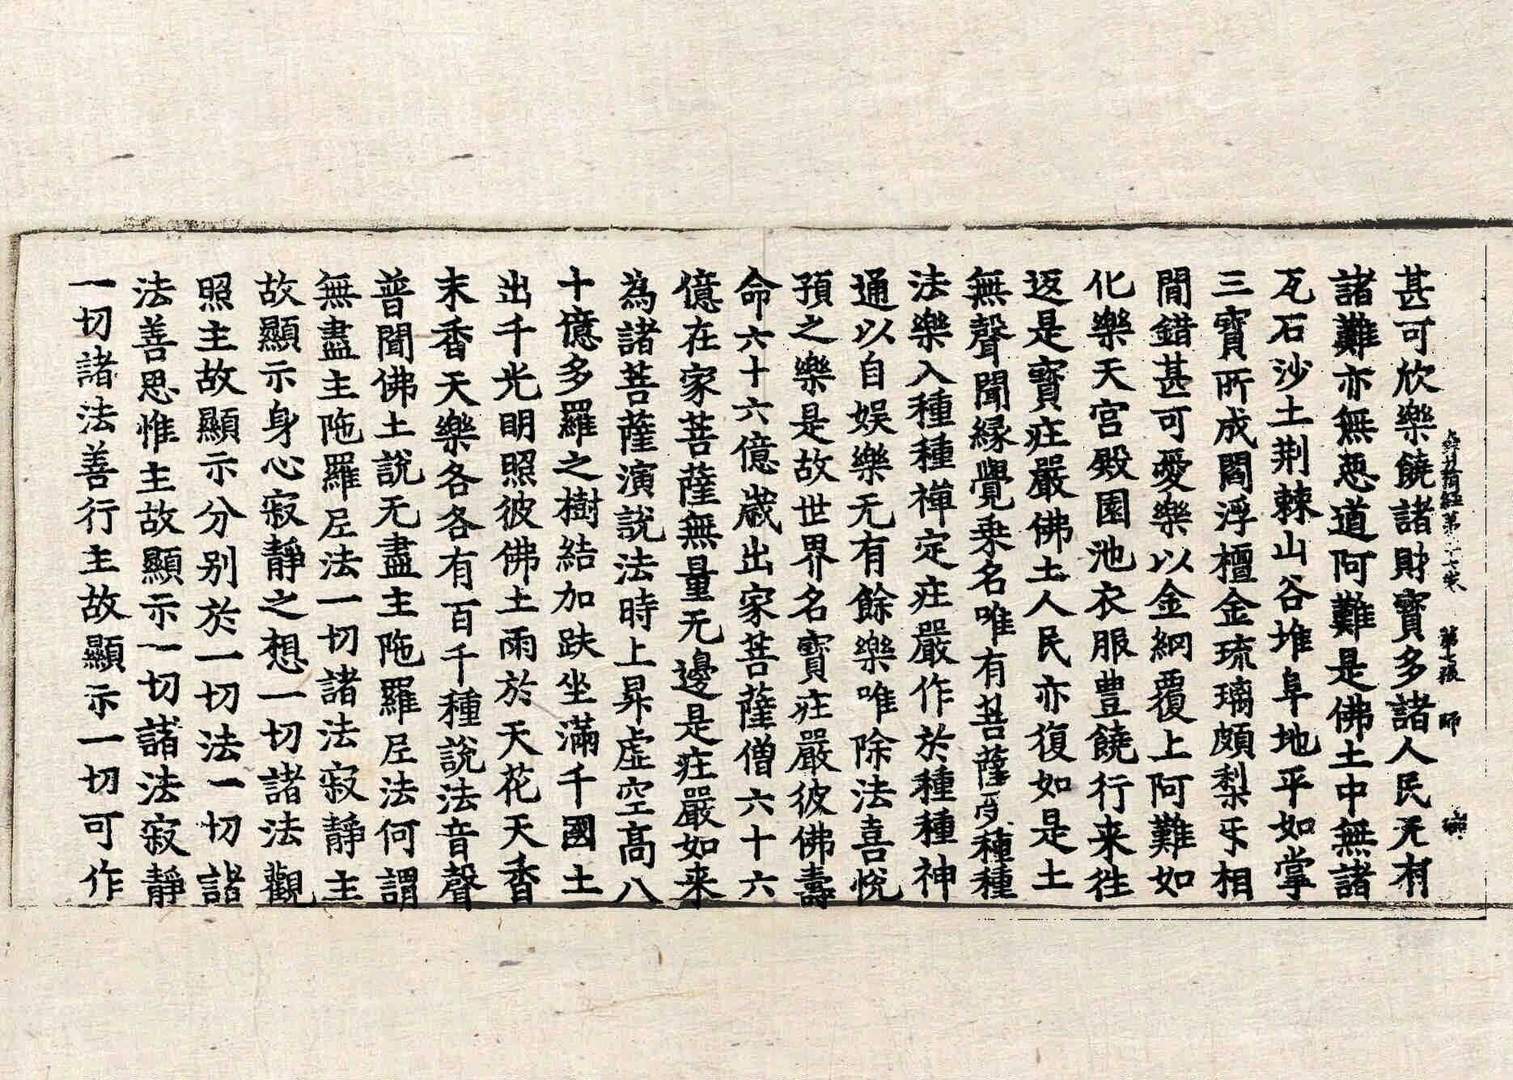 甚可欣樂饒諸財寶多諸人民无有
諸難亦無惡道阿難是佛土中無諸
瓦石沙土荆棘山谷堆阜地平如掌
三寶所成閻浮檀金琉璃頗梨㸦相
間錯甚可愛樂以金網覆上阿難如
化樂天宮殿園池衣服豊饒行来往
返是寶庄嚴佛土人民亦復如是土
無聲聞縁覺乗名唯有菩薩受種種
法樂入種種禅定庄嚴作於種種神
通以自娱樂无有餘樂唯除法喜悅
預之樂是故世界名寶庄嚴彼佛壽
命六十六億歲出家菩薩僧六十六
億在家菩薩無量无邊是庄嚴如来
為諸菩薩演說法時上昇虛空高八
十億多羅之樹結加趺坐滿千國土
出千光明照彼佛土雨於天花天香
末香天樂各各有百千種說法音聲
普聞佛土說无盡主陁羅尼法何謂
無盡主陁羅尼法一切諸法寂靜主
故顯示身心寂靜之想一切諸法觀
照主故顯示分别於一切法一切諸
法善思惟主故顯示一切諸法寂靜
一切諸法善行主故顯示一切可作